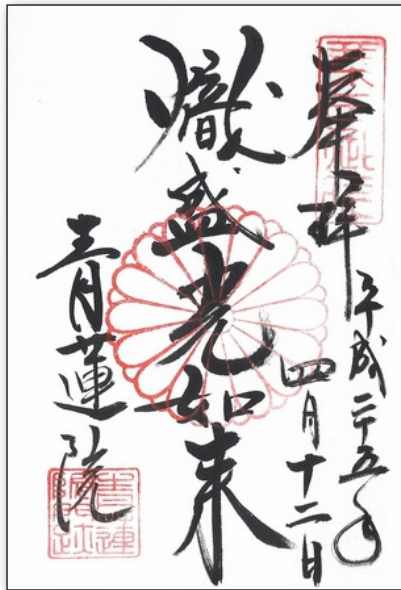 奉拝
平成二十五年
四月十二日
熾盛光如来
青蓮院